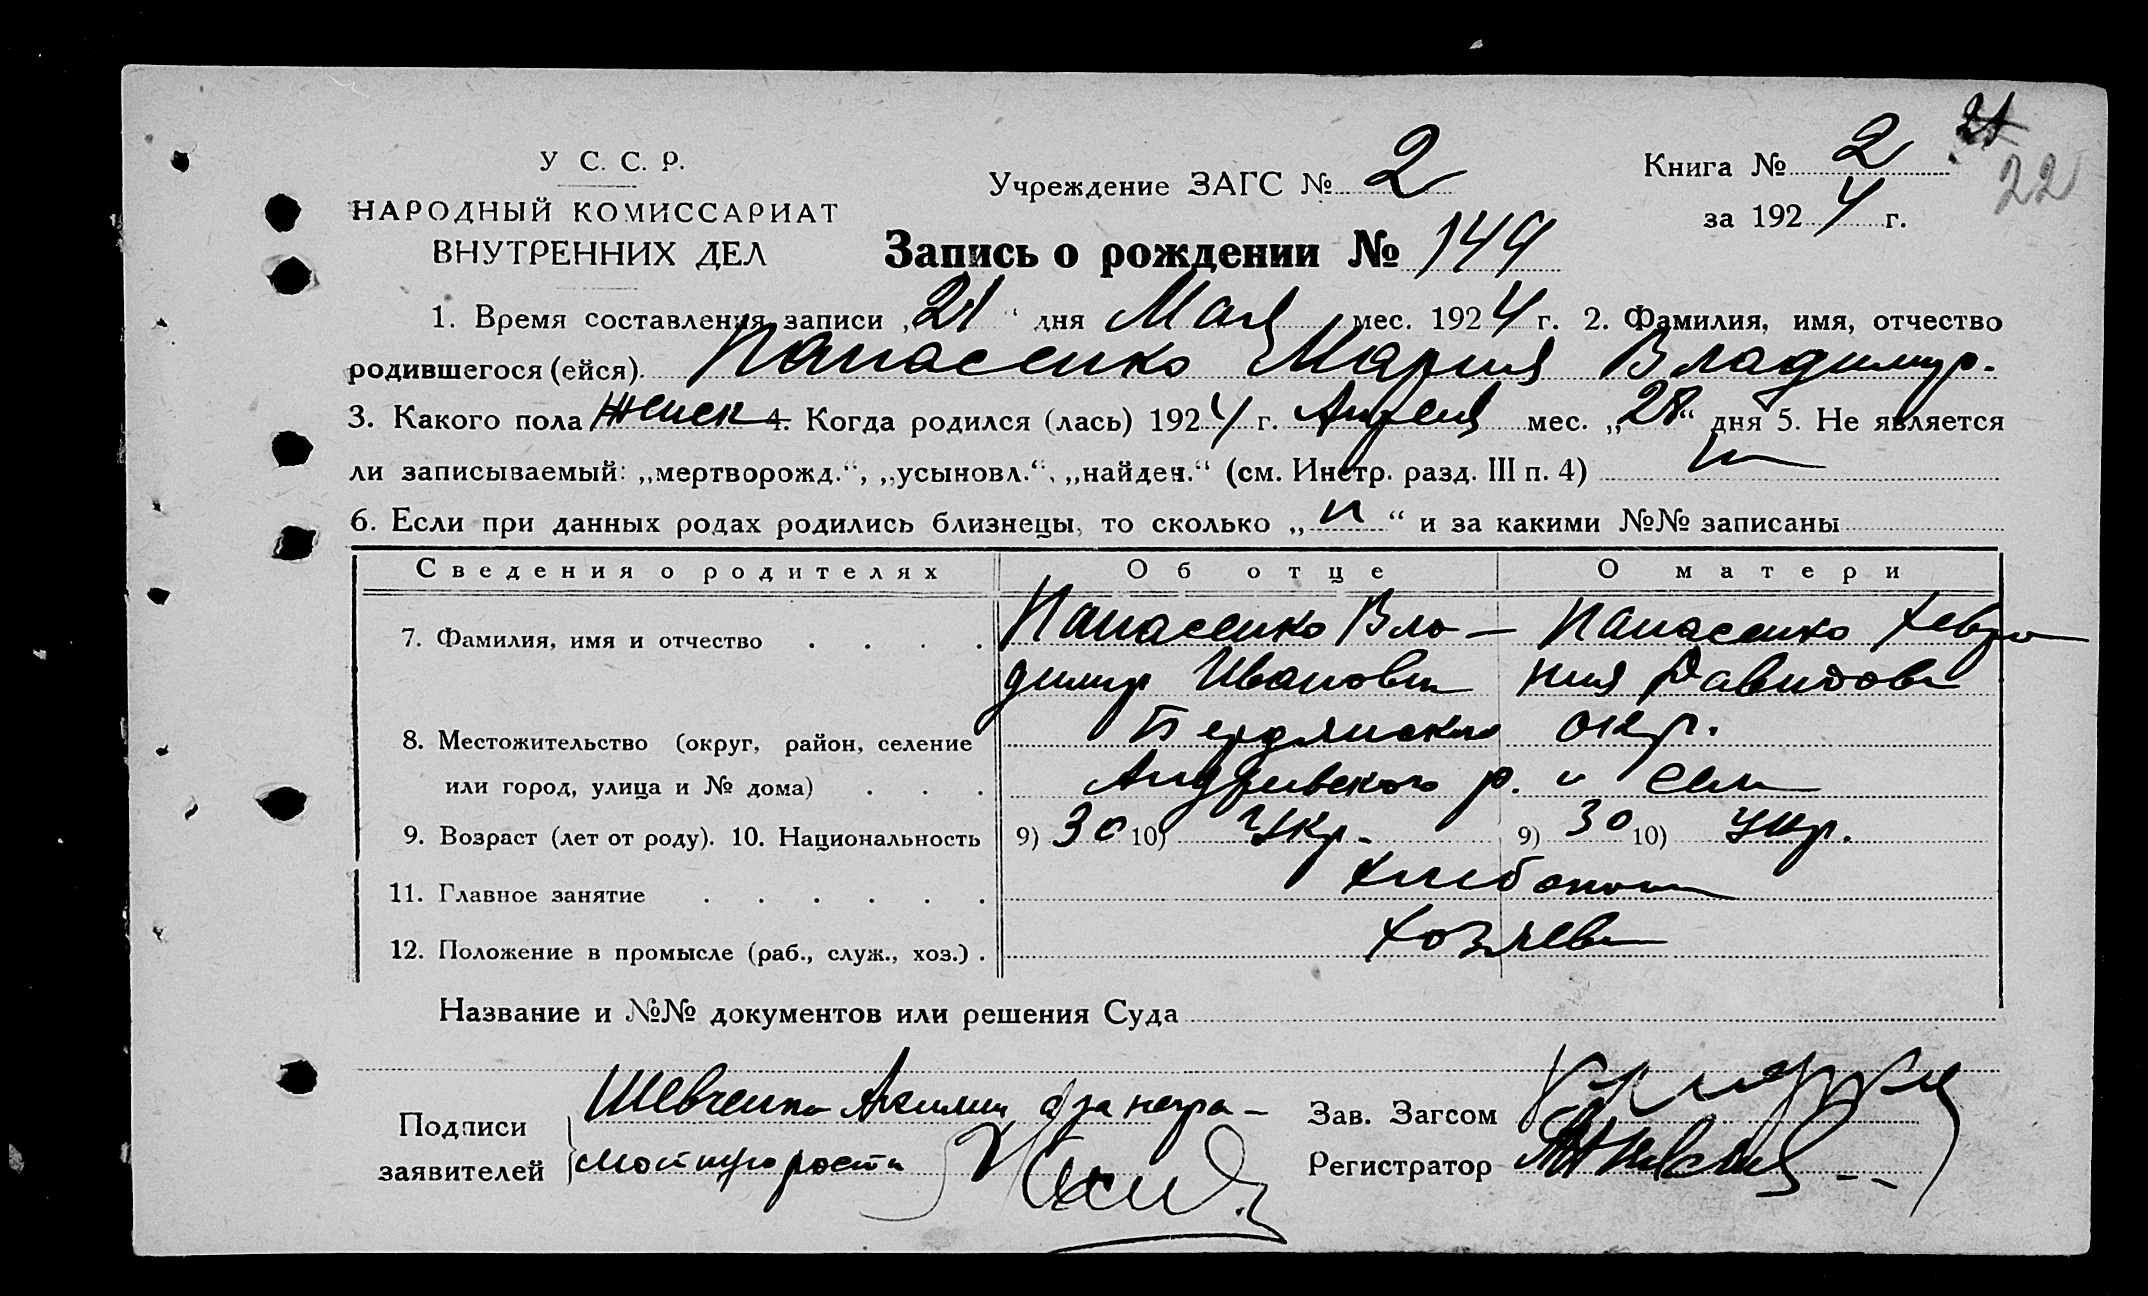 У С. С. Р.
НАРОДНЫЙ КОМИССАРИАТ
ВНУТРЕННИХ ДЕЛ
Учреждение ЗАГС № 2
Книга № 2
за 1924 г.
21
22
Запись о рождении № 149
1. Время составления записи „21“ дня Мая мес. 1924 г. 2. Фамилия, имя, отчество
родившегося (ейся) Панасенко Мария Владимир.
3. Какого пола женск 4. Когда родился (лась) 1924 г. Апреля мес. „28“ дня 5. Не является
ли записываемый: „мертворожд.“, „усыновл.“, „найден.“ (см. Инстр. разд. III п. 4)
6. Если при данных родах родились близнецы, то сколько „ “ и за какими №№ записаны
Сведения о родителях Об отце О матери
7. Фамилия, имя и отчество . . . . Панасенко Вла— Панасенко Хевро
димир Иванович ния Давидов
8. Местожительство (округ, район, селение Бердянского окр.
или город, улица и № дома) . . . Андреевского р. и села
9. Возраст (лет от роду). 10. Национальность 9) 30 10) Укр. 9) 30 10) Укр.
11. Главное занятие . . . . . . Хлебопаш
12. Положение в промысле (раб., служ., хоз.) . Хозяева
Название и №№ документов или решения Суда
Подписи
заявителей
Шевченко Акилин а за негра—
мотную
Зав. Загсом
Регистратор